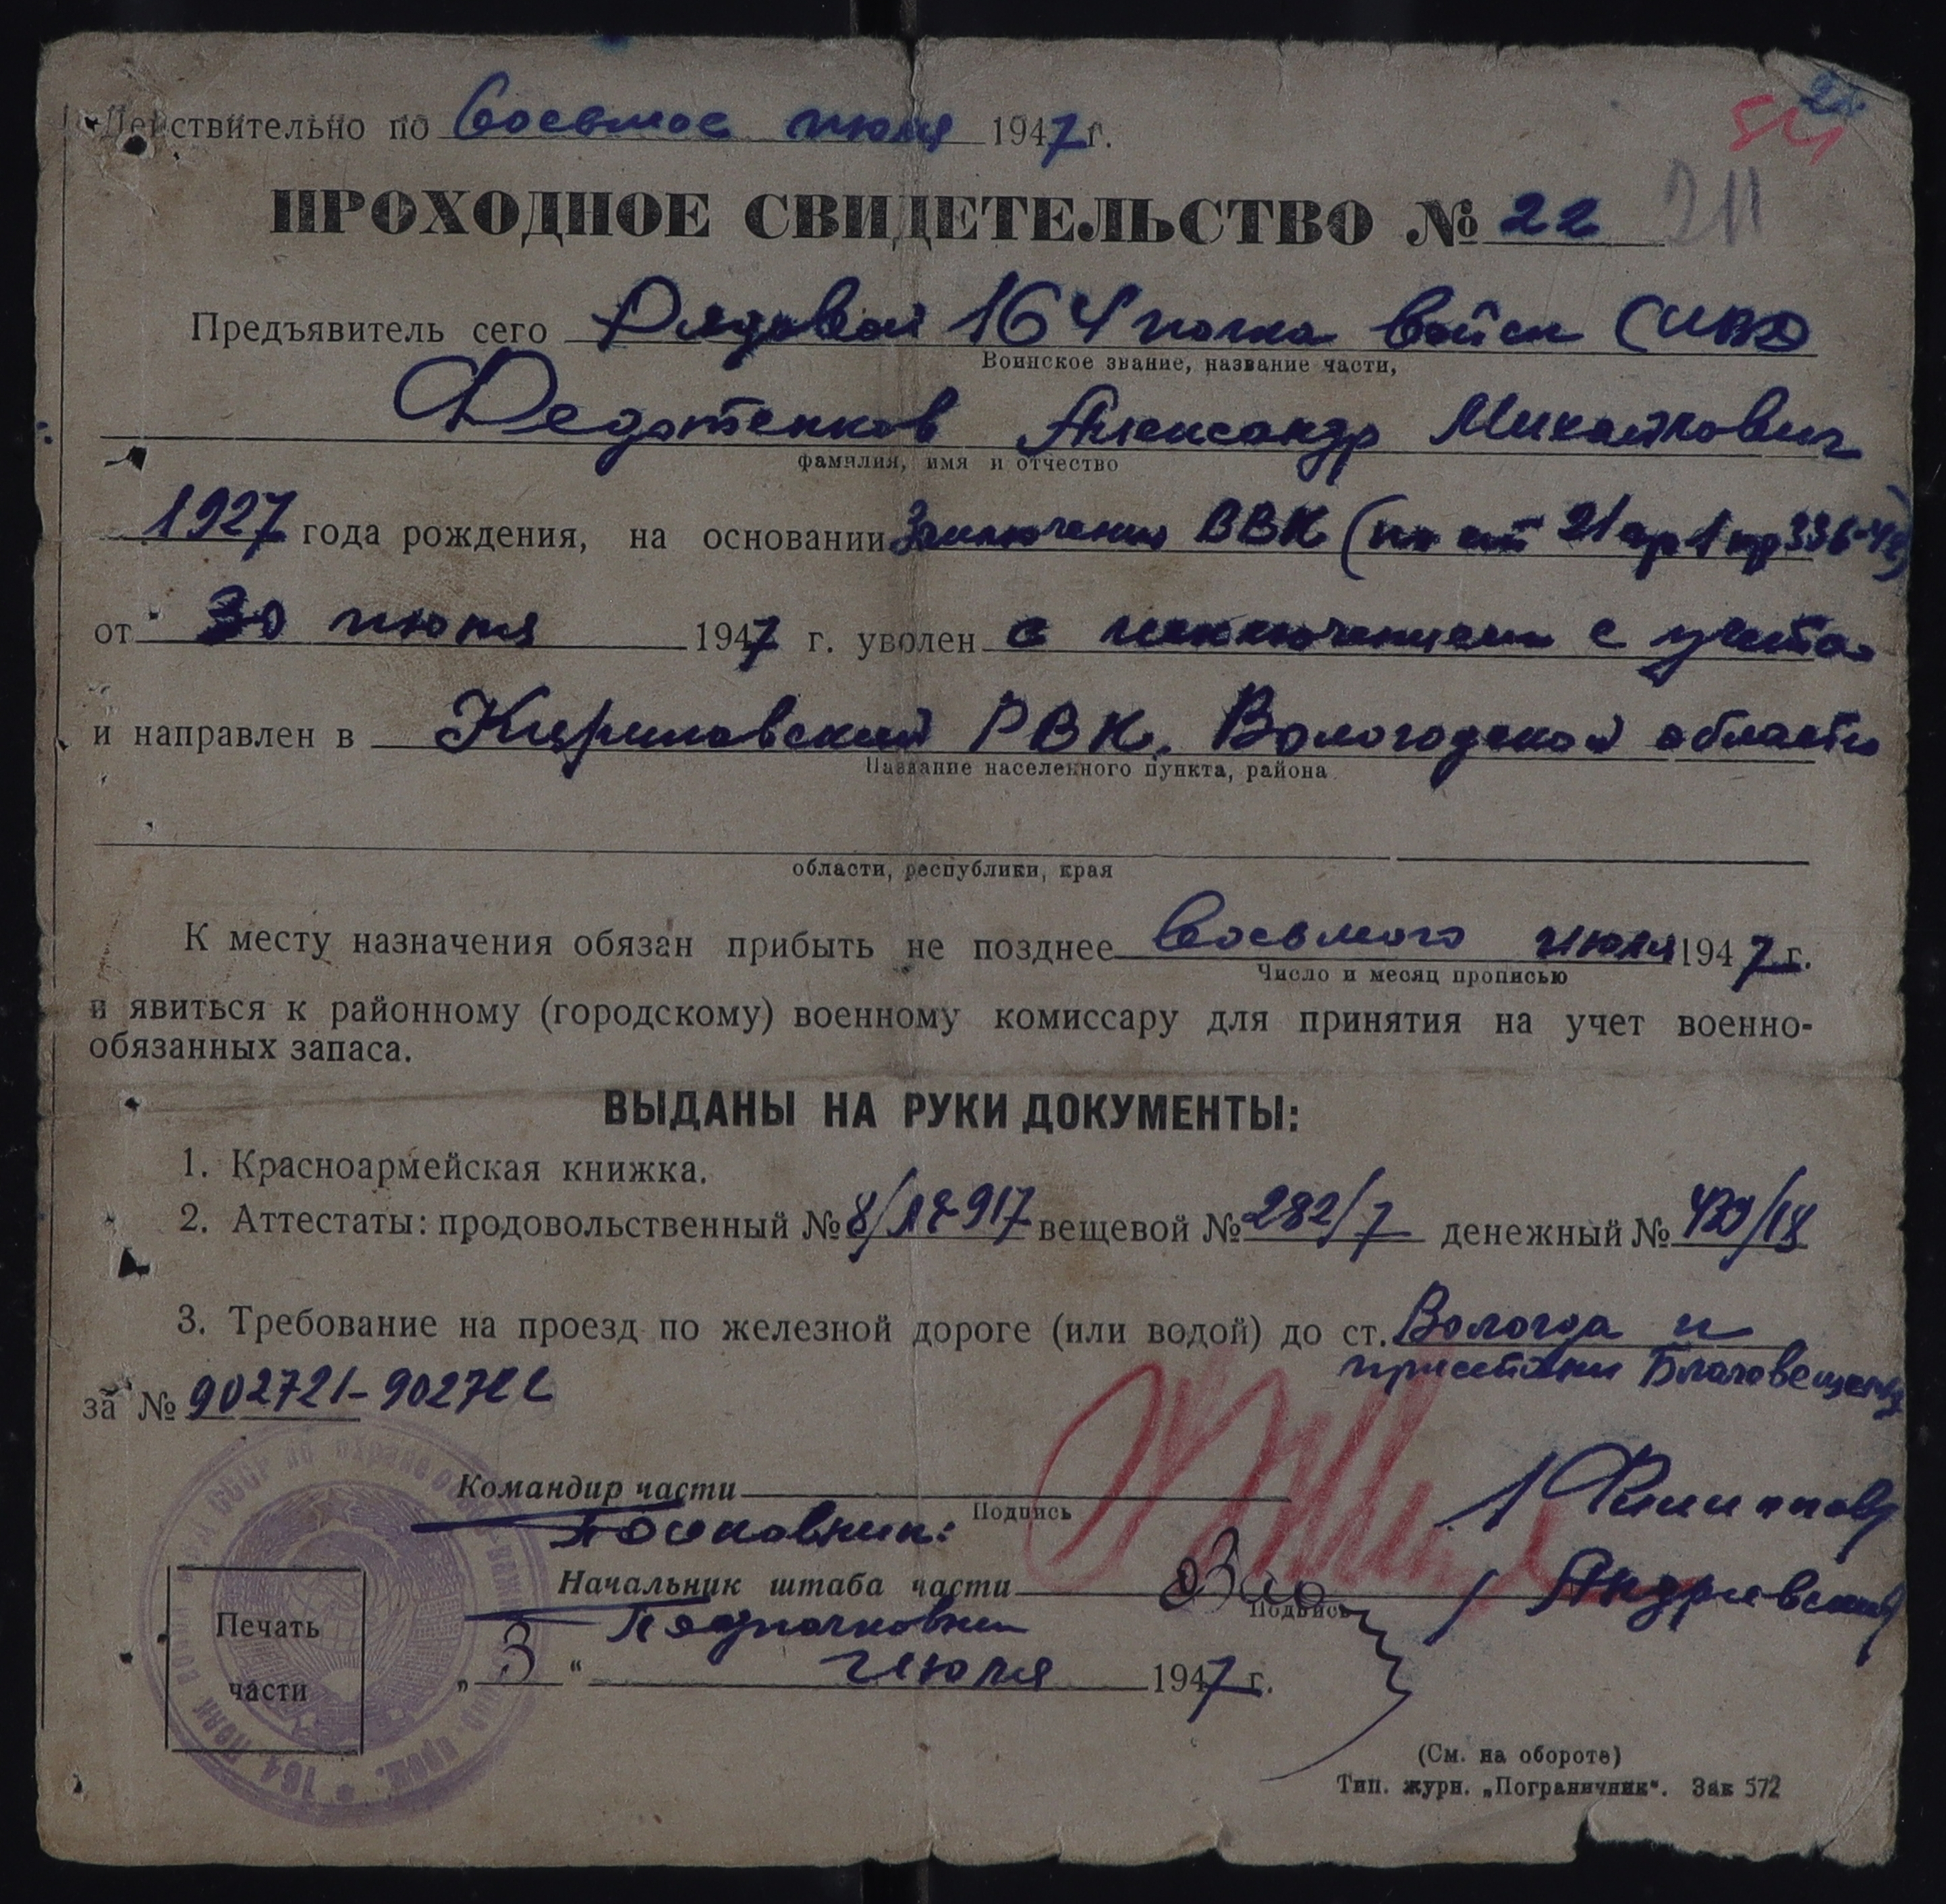 24
54
Действительно по Восьмое июля 1947 г.
ПРОХОДНОЕ СВИДЕТЕЛЬСТВО № 22 211
Предъявитель сего Рядовой 164 полка войск МВД
Воинское звание, название части,
Федотенков Александр Михайлович
фамилия, имя и отчество
1927 года рождения, на основании Заключения ВВК (по ст 21 гр 1 пр 336-42)
от 30 июня 1947 г. уволен с исключением с учета
и направлен в Кириловский РВК, Вологодской области
Название населенного пункта, района
области, республики, края
К месту назначения обязан прибыть не позднее Восьмого июля 1947 г.
Число и месяц прописью
и явиться к районному (городскому) военному комиссару для принятия на учет военно-
обязанных запаса.
ВЫДАНЫ НА РУКИ ДОКУМЕНТЫ:
1. Красноармейская книжка.
2. Аттестаты: продовольственный № вещевой № 282/7 денежный №
3. Требование на проезд по железной дороге (или водой) до ст. Вологда и
пристани Благовещенье
за № 902721-902722
Командир части
Подпись
Полковник: / Филиппов
Начальник штаба части / Андриевский
Подпись
Подполковник
„3“ Июля 1947 г.
Печать
части
164 полк войск
СССР по охране
(См. на обороте)
Тип. журн. „Пограничник“. Зак 572